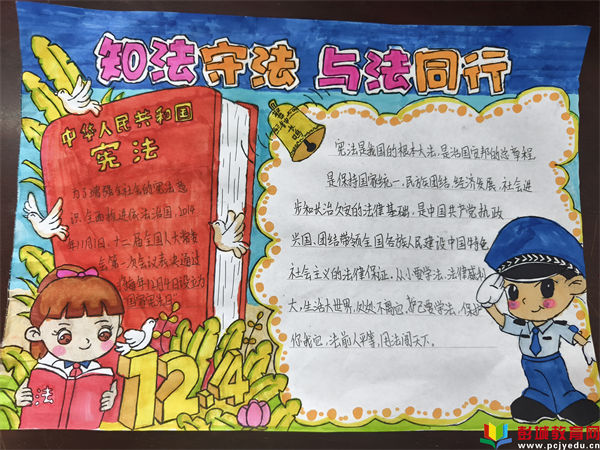 知法守法 与法同行
中华人民共和国
宪法
为了增强全社会的宪法意
识,全面推进依法治国,2014
年11月1日,十二届全国人大常委
会第一次会议表决通过
将每年12月4日设立为
国家宪法日。
警钟长鸣
宪法是我国的根本大法,是治国安邦的总章程
是保持国家统一,民族团结,经济发展,社会进
步和长治久安的法律基础,是中国共产党执政
兴国、团结带领全国各族人民建设中国特色
社会主义的法律保证,从小要学法,法律威力
大,生活大世界,处处不离它,
要学法,保护
你我他,法前人平等,用法闯天下。
法
12.4
彭城教育网
www.pcjyedu.cn